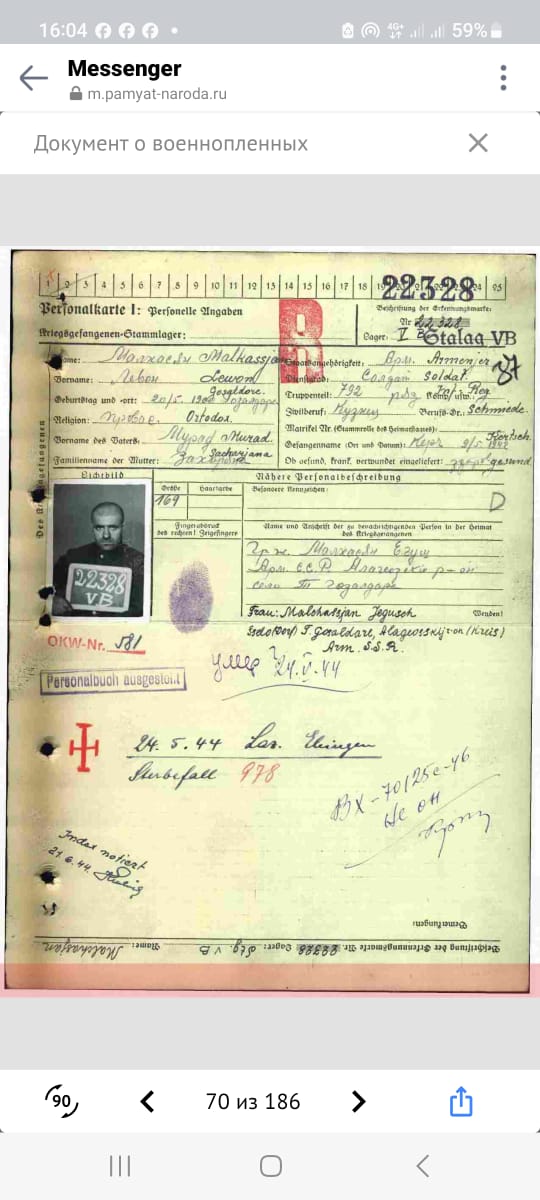 16:04
4G+
59%
Messenger
m.pamyat-naroda.ru
Документ о военнопленных
1 2 3 4 5 6 7 8 9 10 11 12 13 14 15 16 17 18 24 25
22328
Personalkarte I: Personelle Angaben
Beschriftung der Erkennungsmarke:
Nr. 22328
Kriegsgefangenen-Stammlager:
Lager: V B
Stalag VB
Name: Малхасян Malkassjan
Staatsangehörigkeit: Арм. Armenier
Vorname: Левон Lewon
Dienstgrad: Солдат Soldat
Gosaldore.
Geburtstag und -ort: 20/5. Гозалдара
Truppenteil: 792 Inf. Reg.
Religion: Ortodox.
Zivilberuf: Кузнец Berufs-Gr.: Schmiede.
Matrikel Nr. (Stammrolle des Heimatstaates):
Vorname des Vaters: Мурад Murad.
Gefangennahme (Ort und Datum): Керч Kertsch
Familienname der Mutter: Sacharjana
Ob gesund, krank, verwundet eingeliefert: gesund
Des Kriegsgefangenen
Lichtbild
Nähere Personalbeschreibung
Größe
Haarfarbe
Besondere Kennzeichen:
169
D
Fingerabdruck
des rechten! Zeigefingers
Name und Anschrift der zu benachrichtigenden Person in der Heimat
des Kriegsgefangenen
22328
VB
Малхасян Егуш
Арм. С.С.Р. р-он
село Гозалдара
Frau: Malchassjan Jegusch
Wenden!
T. Gosaldare, (Kreis)
Arm. S.S.R.
OKW-Nr. 581
умер 24.V.44
Personalbuch ausgestellt
24.5.44 Laz. Ehingen
Sterbefall 978
ВХ-70125с-46
Не он
Index notiert
21.6.44.
Bemerkungen:
Beschriftung der Erkennungsmarke Nr. 22328 Lager: Stlg. V B Name: Malchasjan
90
70 из 186